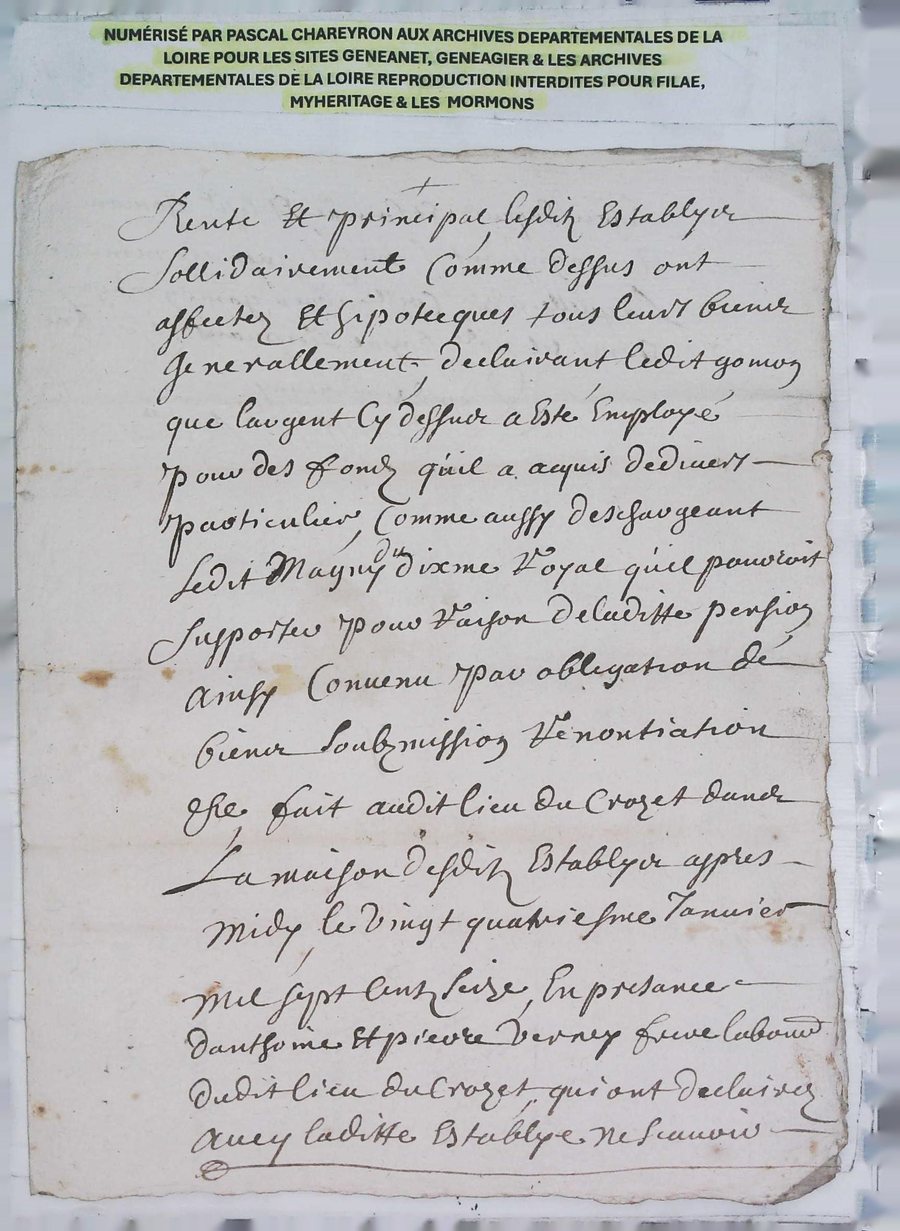 NUMÉRISÉ PAR PASCAL CHAREYRON AUX ARCHIVES DEPARTEMENTALES DE LA
LOIRE POUR LES SITES GENEANET, GENEAGIER & LES ARCHIVES
DEPARTEMENTALES DE LA LOIRE REPRODUCTION INTERDITES POUR FILAE,
MYHERITAGE & LES MORMONS
Rente Et principal, lesditz Establyes
Sollidairement Comme dessus ont
affectez Et hipotecques tous leurs biens
Generallement, declairant ledit gomon
que largent Cy dessus a Esté Employé
pour des fondz quil a acquis de divers
particulier, Comme aussy deschargeant
Ledit Magny du dixme Royal quil pouroit
supporter pour Raison de laditte pension
ainsy Convenu par obligation de
biens soubzmission Renontiation
fait audit lieu du Crozet dans
La maison desditz Establyes appres
midy, le vingt quatriesme Januier
mil sept centz seize, En presance
danthoine Et pierre Verney frere labour
dudit lieu du Crozet, qui ont declairez
auecq laditte Establye ne scauoir